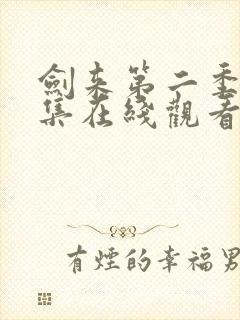 劍来第二季
集在綫觀看
有煙的幸福男